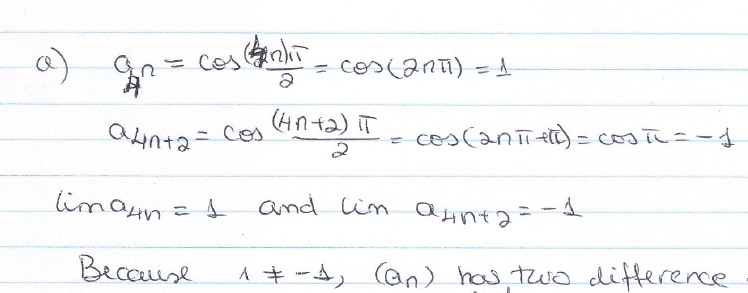 a) a_{4n} = cos (4n)π/2 = cos(2nπ) = 1
a_{4n+2} = cos (4n+2)π/2 = cos(2nπ+π) = cos π = -1
lim a_{4n} = 1 and lim a_{4n+2} = -1
Because 1 ≠ -1, (a_n) has two difference